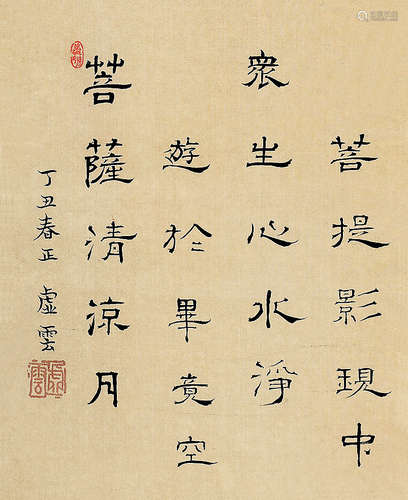 菩提影現中
衆生心水淨
遊於畢竟空
菩薩清涼月
丁丑春正 虛雲
虛雲